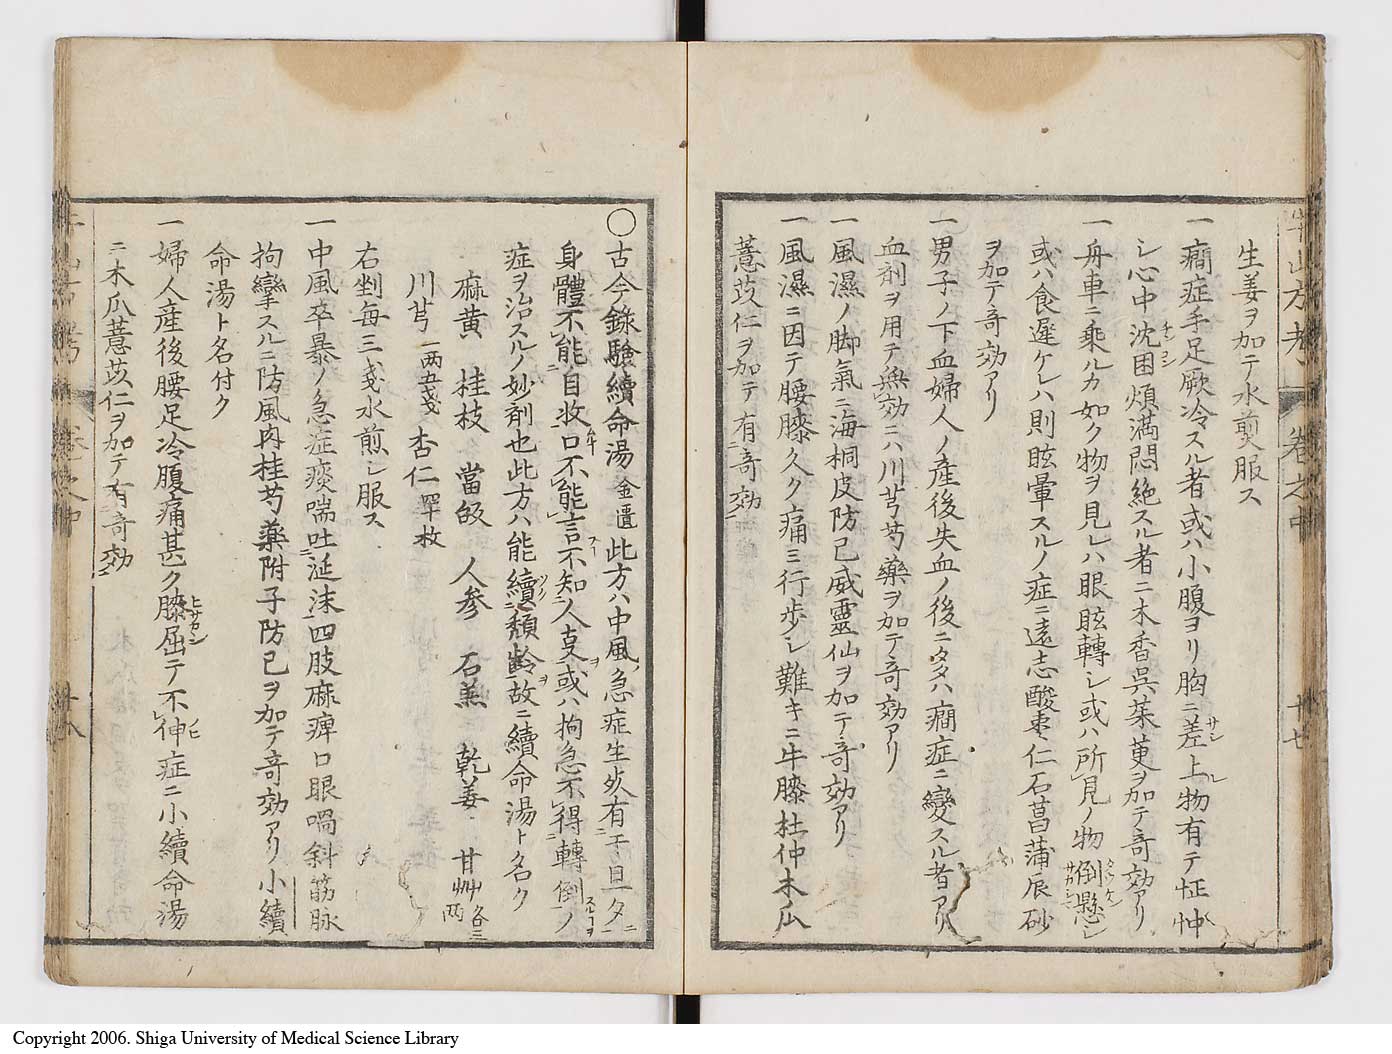 牛山方考 卷之中 廿七
生姜ヲ加テ水煎服ス
一癇症手足厥冷スル者或ハ小腹ヨリ胸ニ差上ル物有テ怔忡
シ心中沈困煩満悶絶スル者ニ木香呉茱萸ヲ加テ奇効アリ
一舟車ニ乘ルカ如ク物ヲ見ハ眼眩轉シ或ハ所見ノ物倒懸シ
或ハ食遅ケレハ則眩暈スルノ症ニ遠志酸棗仁石菖蒲辰砂
ヲ加テ奇効アリ
一男子ノ下血婦人ノ産後失血ノ後ニ多ハ癇症ニ變スル者アリ
血剤ヲ用テ無効ニハ川芎芍藥ヲ加テ奇効アリ
一風濕ノ脚氣ニ海桐皮防已威靈仙ヲ加テ奇効アリ
一風濕ニ因テ腰膝久ク痛ミ行歩シ難キニ牛膝杜仲木瓜
薏苡仁ヲ加テ有奇効
○古今錄驗續命湯 金匱 此方ハ中風急症生死有于旦夕
身體不能自收口不能言不知人支或ハ拘急不得轉倒ノ
症ヲ治スルノ妙剤也此方ハ能續頽齡故ニ續命湯ト名ク
麻黄 桂枝 當皈 人参 石羔 乾姜 甘艸 各三両
川芎 一両五戔 杏仁 四十枚
右剉毎三戔水煎シ服ス
一中風卒暴ノ急症痰喘吐涎沫四肢麻痺口眼喎斜筋脉
拘攣スルニ防風肉桂芍藥附子防已ヲ加テ奇効アリ小續
命湯ト名付ク
一婦人産後腰足冷腹痛甚ク膝屈テ不伸症ニ小續命湯
ニ木瓜薏苡仁ヲ加テ有奇効
卷之中 廿八
Copyright 2006. Shiga University of Medical Science Library